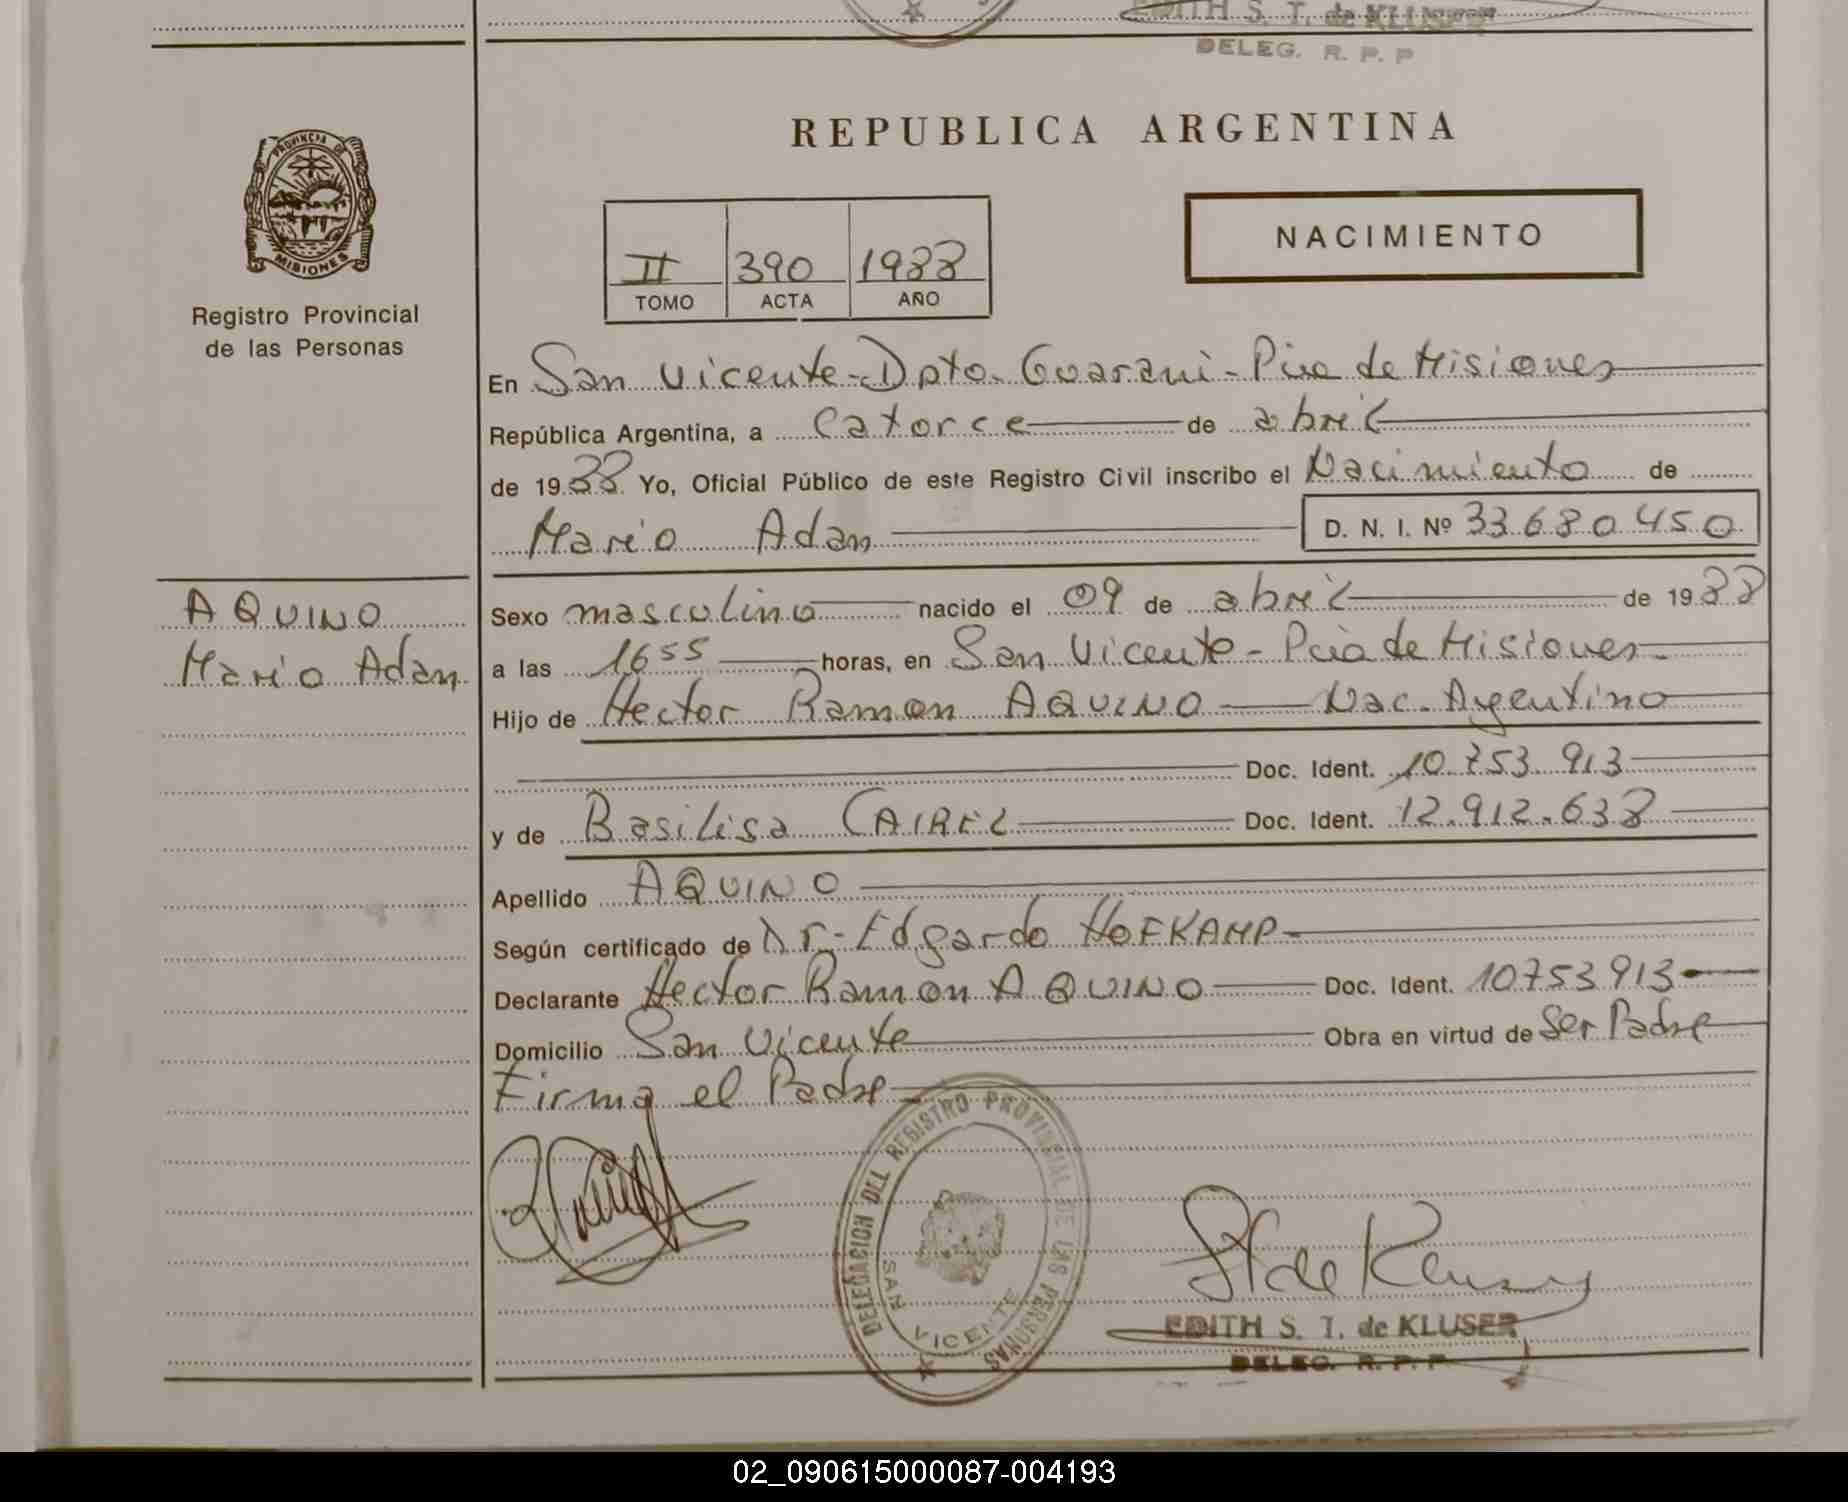 EDITH S. T. de KLUSER
DELEG. R. P. P
REPUBLICA ARGENTINA
PROVINCIA DE MISIONES
Registro Provincial
de las Personas
II 390 1988
TOMO ACTA AÑO
NACIMIENTO
En San Vicente - Dpto. Guarani - Pcia de Misiones
República Argentina, a catorce de abril
de 1988 Yo, Oficial Público de este Registro Civil inscribo el Nacimiento de
Mario Adan D. N. I. Nº 33.680.450
AQUINO
Mario Adan
Sexo masculino nacido el 09 de abril de 1988
a las 1655 horas, en San Vicente - Pcia de Misiones
Hijo de Hector Ramon AQUINO Nac. Argentino
Doc. Ident. 10.753.913
y de Basilisa CAIREL Doc. Ident. 12.912.638
Apellido AQUINO
Según certificado de Dr. Edgardo HOFKAMP
Declarante Hector Ramon AQUINO Doc. Ident. 10753913
Domicilio San Vicente Obra en virtud de Ser Padre
Firma el Padre
DELEGACION DEL REGISTRO PROVINCIAL DE LAS PERSONAS
SAN VICENTE
EDITH S. T. de KLUSER
DELEG. R. P. P
02_090615000087-004193